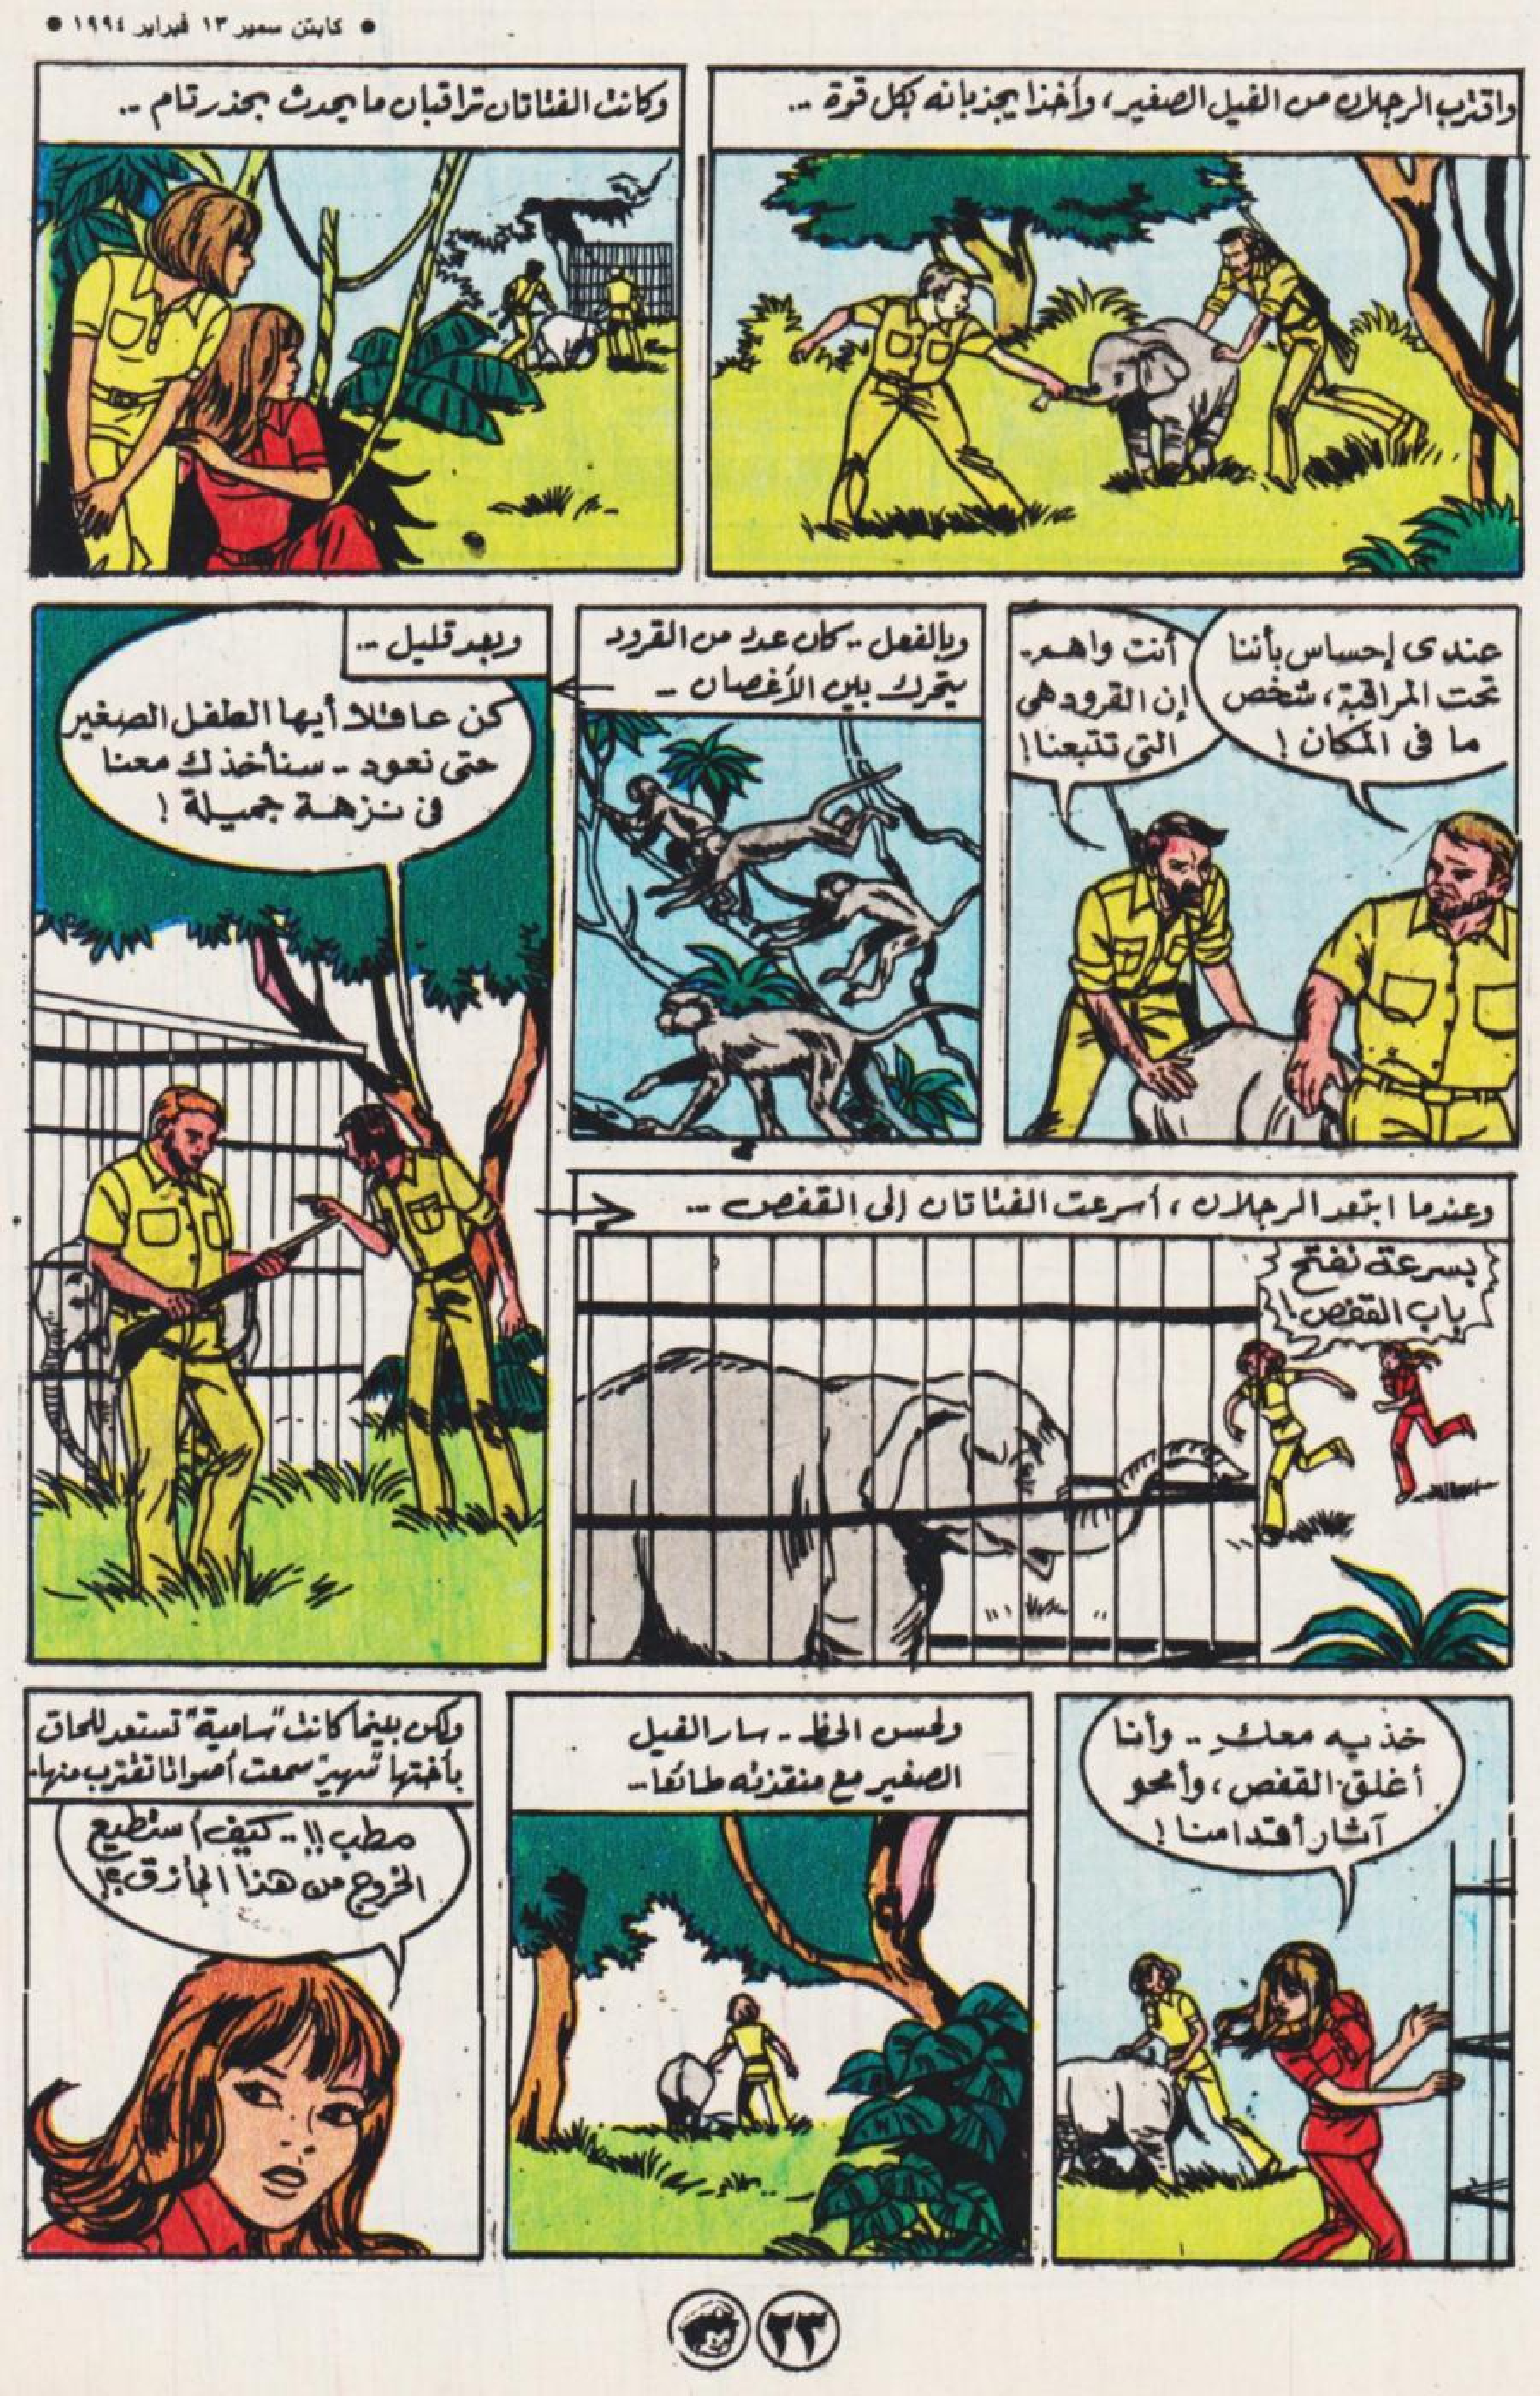 ● كابتن سمير ١٣ فبراير ١٩٩٤ ●
واقترب الرجلان من الفيل الصغير، وأخذا يجذبانه بكل قوة ..
وكانت الفتاتان تراقبان ما يحدث بحذر تام ..
عندى إحساس بأننا
تحت المراقبة، شخص
ما فى المكان !
أنت واهم..
إن القرود هى
التى تتبعنا !
وبالفعل .. كان عدد من القرود
يتحرك بين الأغصان ..
وبعد قليل ...
كن عاقلا أيها الطفل الصغير
حتى نعود .. سنأخذك معنا
فى نزهة جميلة !
وعندما ابتعد الرجلان ، أسرعت الفتاتان إلى القفص ...
بسرعة نفتح
باب القفص !
خذيه معكِ .. وأنا
أغلق القفص ، وأمحو
آثار أقدامنا !
ولحسن الحظ .. سار الفيل
الصغير مع منقذته طائعا...
ولكن بينما كانت "سامية" تستعد للحاق
بأختها "سهير" سمعت أصواتا تقترب منها..
مطب !! .. كيف أستطيع
الخروج من هذا المأزق ؟!
٣٣